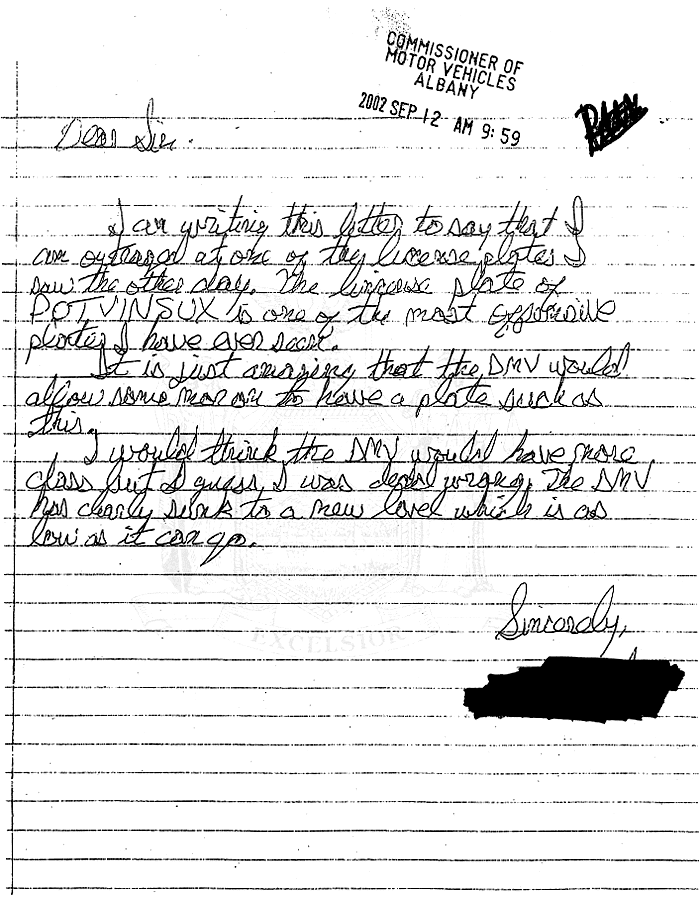 COMMISSIONER OF
MOTOR VEHICLES
ALBANY
2002 SEP 12 AM 9:59
Dear Sir.
I am writing this letter to say that I
am outraged at one of the license plates I
saw the other day. The license plate of
POTVINSUX is one of the most offensive
plates I have ever seen.
It is just amazing that the DMV would
allow some moron to have a plate such as
this.
I would think the DMV would have more
class but I guess I was dead wrong. The DMV
has clearly sunk to a new level which is as
low as it can go.
Sincerely,
EXCELSIOR